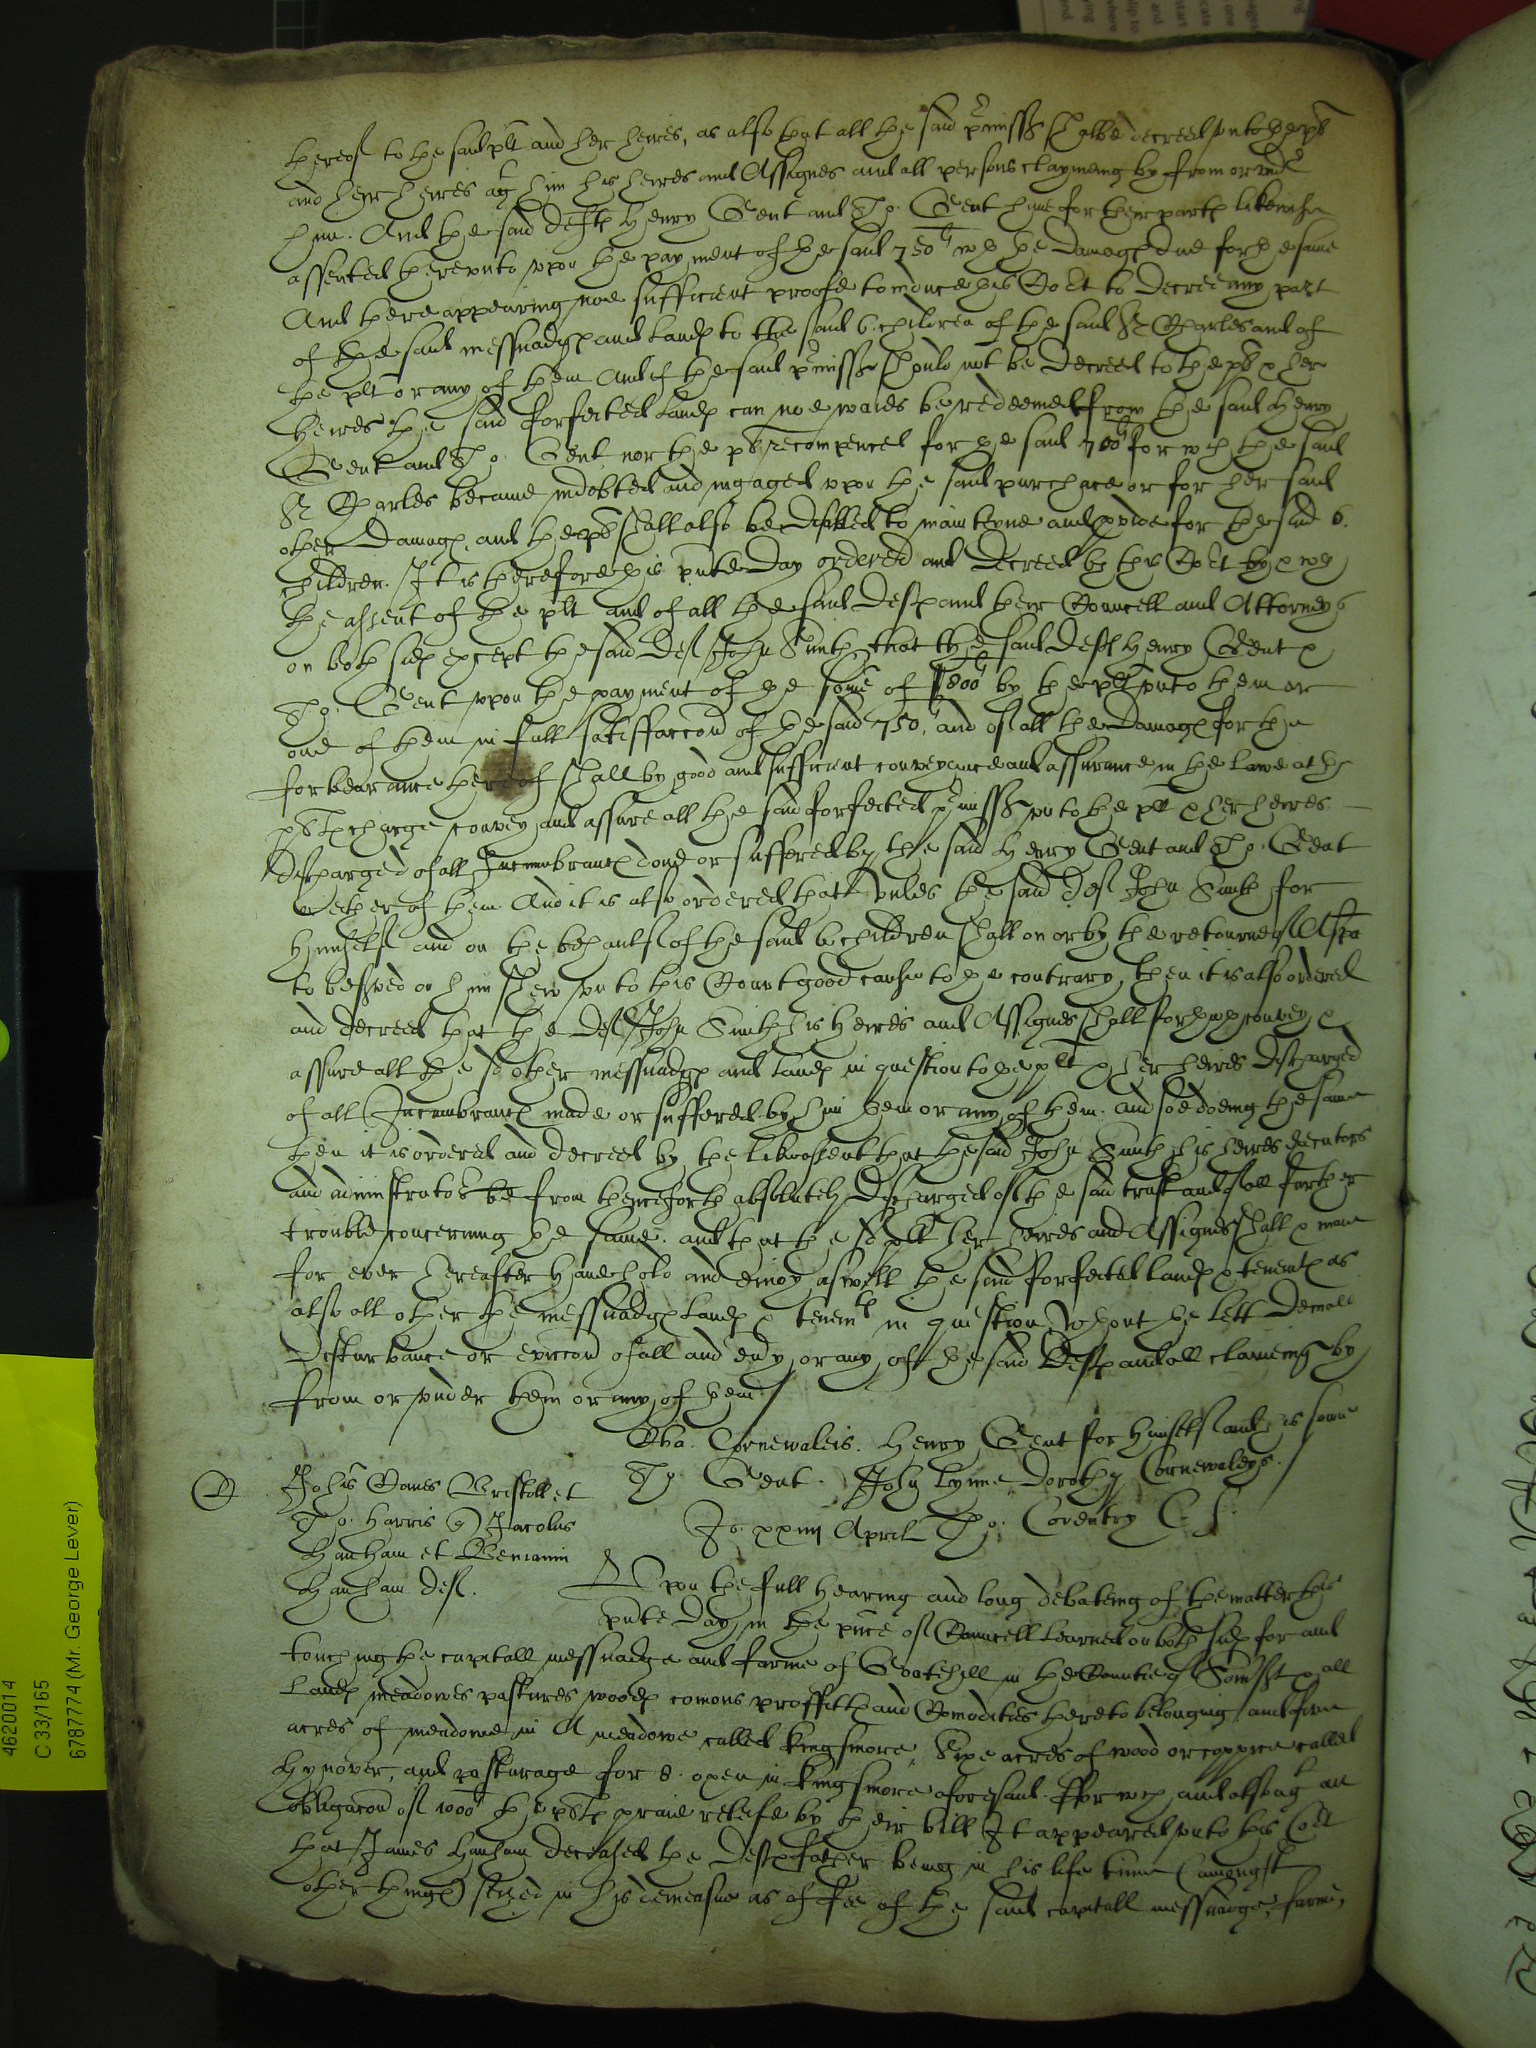 thereof to the said plt and her heires, as also that all the said pmisss shalbe decreed unto the plt
and her heires agt him his heires and Assignes and all persons clayming by from or undr
him. And the said defts Henry Gent and Tho. Gent have for their parts likewise
assented thereunto upon the payment of the said 750li wth the damages due for the same
And there appearing noe sufficient proofe to induce this Cort to decree any part
of the said messuadges and lands to the said 6. children of the said Sr Charles and of
the plt or any of them And if the said pmisss should not be decreed to the plt & her
heires the said forfeited lands can noe waies be redeemed from the said Henry
Gent and Tho. Gent nor the plt recompenced for the said 700li for wch the said
Sr Charles became indebted and ingaged upon the said purchace or for her said
other damages, and the plt shall also be disabled to mainteyne and pvide for the said 6.
children. It is therefore this pnte day ordered and decreed by this Cort by & wth
the assent of the plt and of all the said defts and their Councell and Attorneys
on both sides except the said deft John Smith, that the said defts Henry Gent &
Tho. Gent upon the payment of the some of 800li by the plt unto them or
one of them in full satisfaccon of the said 750li, and of all the damages for the
forbearance thereof shall by good and sufficient conveyance and assurance in the lawe at the
plts charge convey and assure all the said forfeited pmisss unto the plt & her heires
discharged of all Incumbrances done or suffered by the said Henry Gent and Tho. Gent
or ether of them And it is also ordered that unles the said deft John Smith for
himself and on the behaulf of the said 6 children shall on or by the retourne of a Spa
to be served on him shew unto this Court good cause to the contrary, then it is also ordered
and decreed that the deft John Smith his heires and Assignes shall forthwth convey &
assure all the sd other messuadges and lands in question to the plt & her heires discharged
of all Incumbrances made or suffered by him them or any of them. and soe doeing the same
then it is ordered and decreed by the like assent that the said John Smith his heires executors
and administrators be from thenceforth absolutely discharged of the said trust and of all further
trouble concerning the same. and that the sd plt her heires and Assignes shall & maie
for ever hereafter have hold and enioy aswell the said forfeited lands & tenemts as
also all other the messuadges lands & tenemts in question wthout the lett deniall
disturbance or eviccon of all and every or any of the said defts and all claimeing by
from or under them or any of them
Cha. Cornewaleis. Henry Gent for himself and his sonne
Tho Gent. John Lynne Dorothy Cornewaleys.
Jo. xxiiij April Tho. Coventry C. S.
Johes Comes Bristoll et
Tho. Harris Jacobus
Hanham et Beniamin
Hanham def.
Upon the full hearing and long debateing of the matter this
pnte day in the pnce of Councell learned on both sides for and
touching the capitall messuadge and farme of Goathill in the Countie of Somst & all
lands meadowes pastures woods comons proffitts and Comodities thereto belonging and five
acres of meadowe in A meadowe called Kingsmore, Sixe acres of wood or coppice called
Hynover, and pasturage for 8. oxen in Kingsmore aforesaid. ffor wch and also agt an
obligacon of 1000li the plts praie releife by their bill It appeared unto this Cort
that James Hanham deceased the defts father being in his life time (amongst
other things) seized in his demeasne as of fee of the said capitall messuadge, farme,
4620014
C 33/165
6787774 (Mr. George Lever)